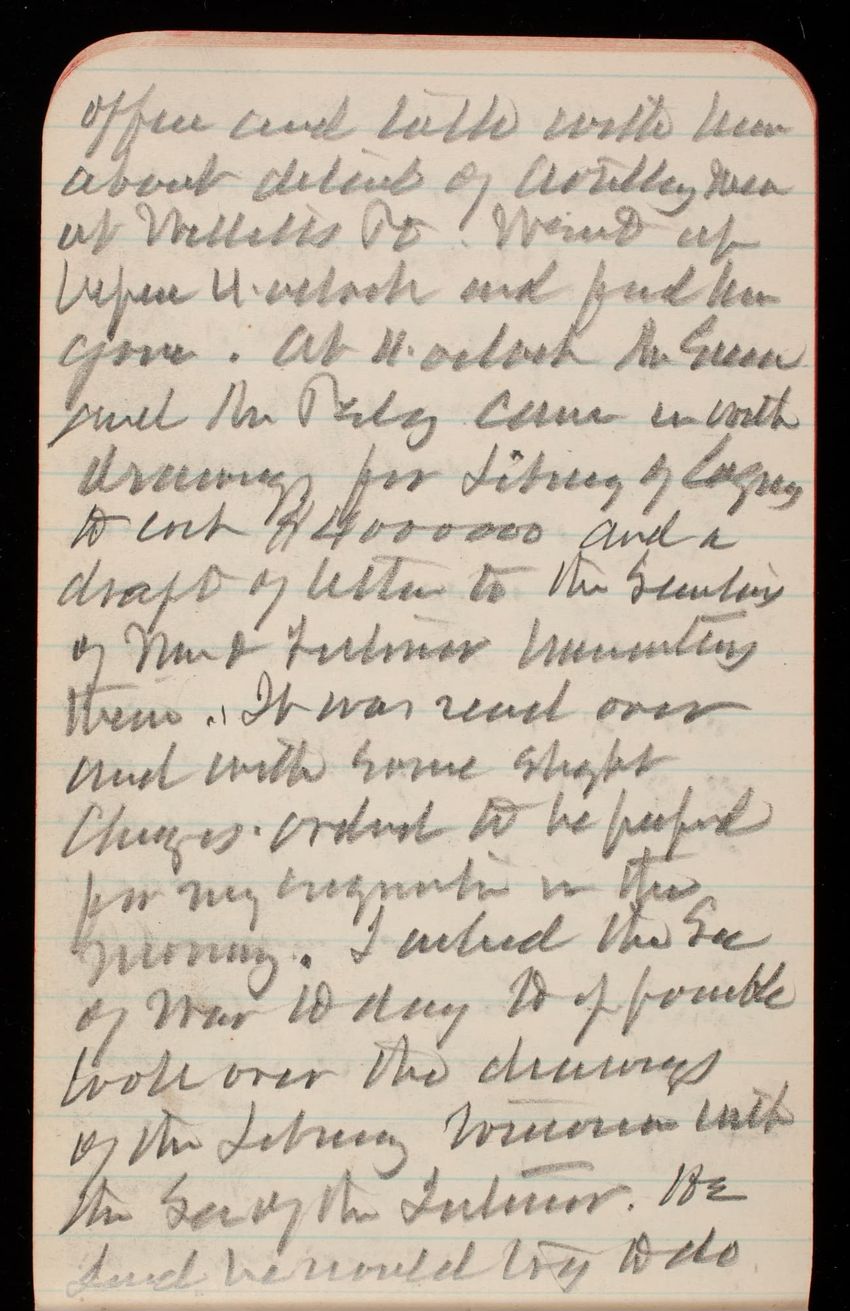 office and talk with him
about detail of Artillery men
at Willets Pt. Went up
before 4 oclock and find him
gone. At 4 oclock
and Mr Pelz came in with
drawings for Library of Congress
to cost $4000000 and a
draft of letter to the Secretaries
of War & Interior transmitting
them. It was read over
and with some slight
Changes ordered to be
for my signature in the
morning. I asked the Sec
of War to day to if possible
look over the drawings
of the Library tomorrow with
the Sec of the Interior. He
said he would try to do